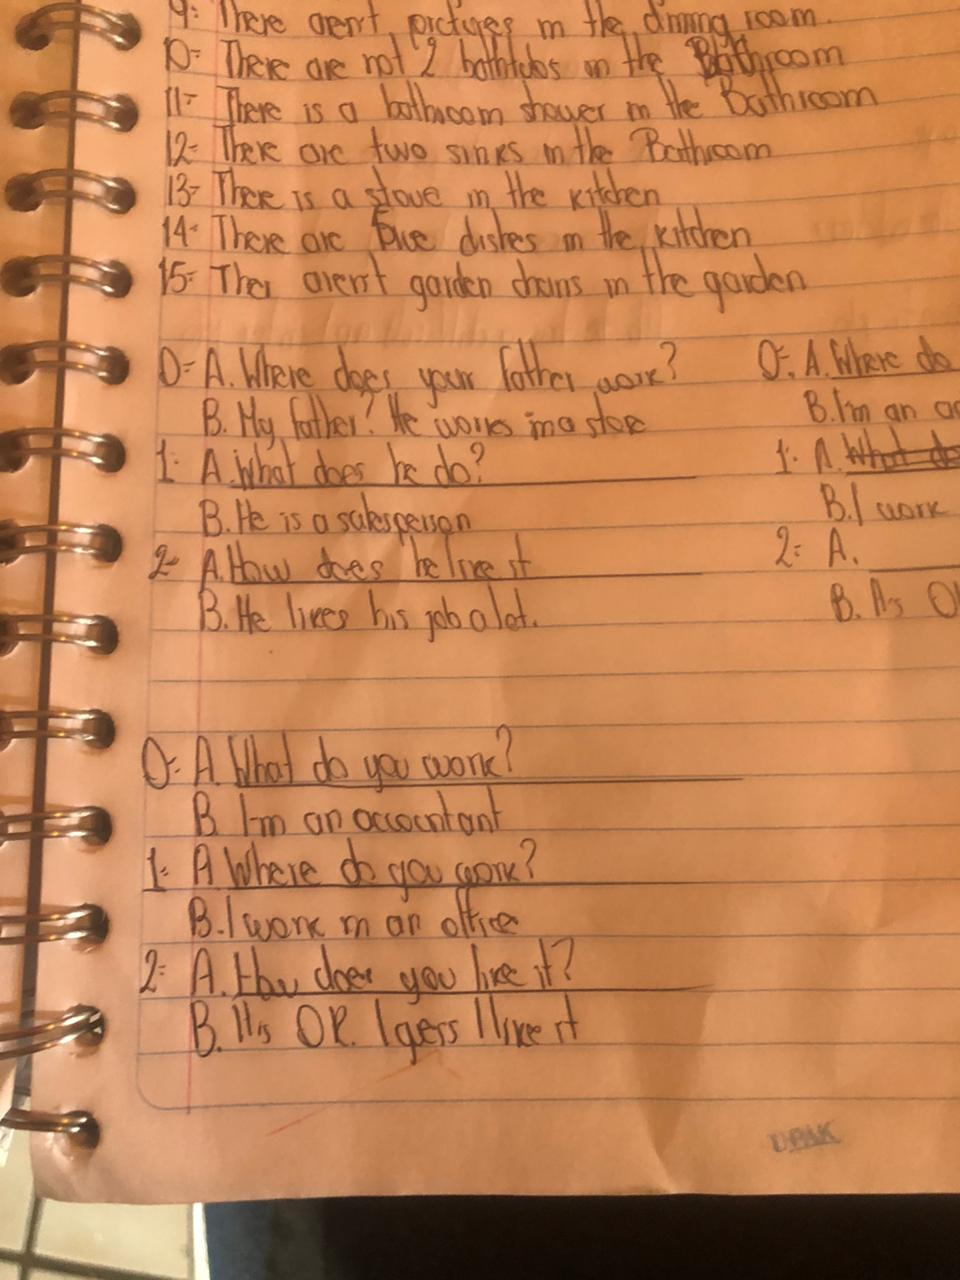 9: There aren't pictures in the dining room.
10= There are not 2 bathtubs in the Bathroom
11- There is a bathroom shower in the Bathroom
12- There are two sinks in the Bathroom
13- There is a stove in the kitchen
14- There are five dishes in the kitchen
15- Ther aren't garden chairs in the garden
0= A. Where does your father work?
B. My father? He works in a store
1: A. What does he do?
B. He is a salesperson
2- A. How does he like it
B. He likes his job a lot.
0: A. Where do
B. I'm an
1: A. What do
B. I work
2= A.
B.
0: A. What do you work?
B. I'm an accountant
1: A Where do you work?
B. I work in an office
2= A. How does you like it?
B. It's OK. I gess I like it
UPAK